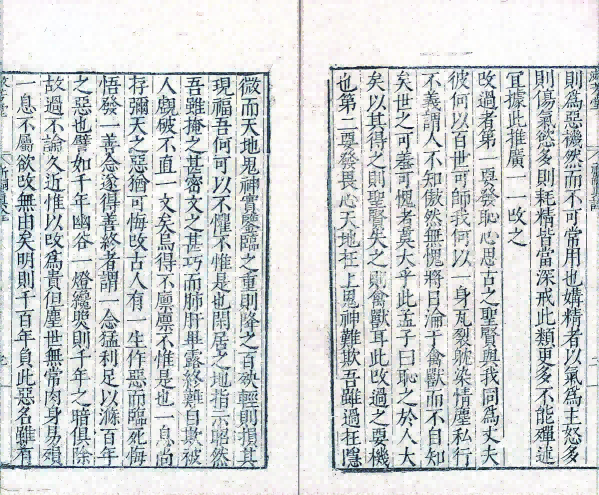 則為惡機然而不可常用也媾精者以氣為主怒多
則傷氣慾多則耗精皆當深戒此類更多不能殫述
宜據此推廣一一改之
改過者第一要發恥心思古之聖賢與我同為丈夫
彼何以百世可師我何以一身瓦裂躭染情塵私行
不義謂人不知傲然無愧將日淪于禽獸而不自知
矣世之可羞可愧者莫大乎此孟子曰恥之於人大
矣以其得之則聖賢失之則禽獸耳此改過之要機
也第二要發畏心天地在上鬼神難欺吾雖過在隱
微而天地鬼神實鑒臨之重則降之百殃輕則損其
現福吾何可以不懼不惟是也閒居之地指示昭然
吾雖掩之甚密文之甚巧而肺肝畢露終難自欺被
人覷破不直一文矣烏得不懍懍不惟是也一息尚
存彌天之惡猶可悔改古人有一生作惡而臨死悔
悟發一善念遂得善終者謂一念猛利足以滌百年
之惡也譬如千年幽谷一燈纔照則千年之暗俱除
故過不論久近惟以改為貴但塵世無常肉身易殞
一息不屬欲改無由矣明則千百年負此惡名雖有